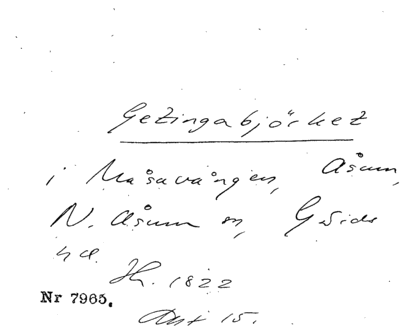 Getingabjörket
i Måsavången, Åsum,
N. Åsum sn, Gärds
hd.
Sk. 1822
Nr 7965.
Akt 15.